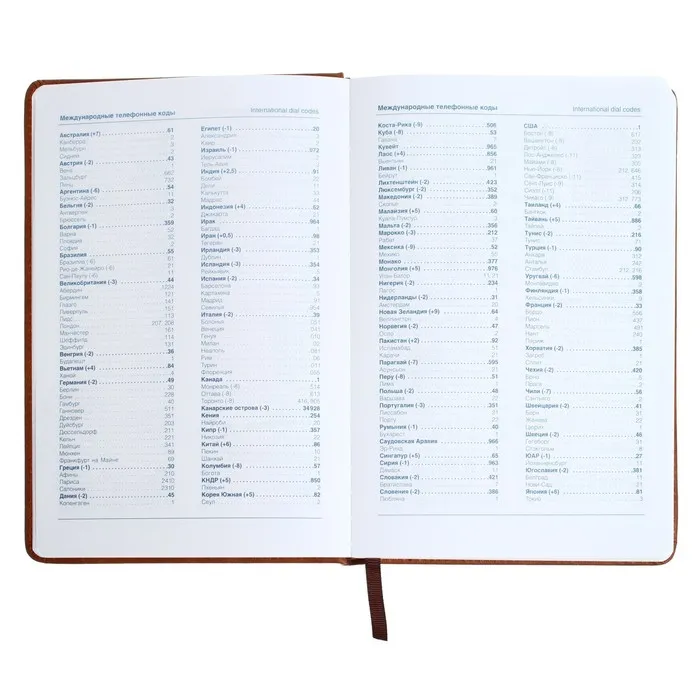 Международные телефонные коды International dial codes
Австралия (+7) 61
Канберра 2
Мельбурн 3
Сидней 2
Австрия (-2) 43
Вена
Зальцбург 662
Линц 732
Аргентина (-6) 54
Буэнос-Айрес
Бельгия (-2) 32
Антверпен 3
Брюссель 2
Болгария (-1) 359
Варна 52
Пловдив 32
София 2
Бразилия 55
Бразилия (-6) 61
Рио-де-Жанейро (-6) 21
Сан-Паулу (-6) 11
Великобритания (-3) 44
Абердин 1224
Бирмингем 121
Глазго 141
Ливерпуль 151
Лидс 113
Лондон 207, 208
Манчестер 161
Шеффилд 114
Эдинбург 131
Венгрия (-2) 36
Будапешт 1
Вьетнам (+4) 84
Ханой 4
Германия (-2) 49
Берлин 30
Бонн 228
Гамбург 40
Ганновер 511
Дрезден 351
Дуйсбург 203
Дюссельдорф 211
Кельн 221
Лейпциг 341
Мюнхен 89
Франкфурт на Майне 69
Греция (-1) 30
Афины 210
Лариса 2410
Салоники 2310
Дания (-2) 45
Копенгаген
Египет (-1) 20
Александрия 3
Каир 2
Израиль (-1) 972
Иерусалим 2
Тель-Авив 3
Индия (+2,5) 91
Бомбей 22
Дели 11
Калькутта 33
Мадрас 44
Индонезия (+4) 62
Джакарта 21
Ирак 964
Багдад 1
Иран (+0,5) 98
Тегеран 21
Ирландия (-3) 353
Дублин 1
Исландия (-3) 354
Рейкьявик
Испания (-2) 34
Барселона 93
Картахена
Мадрид 91
Севилья
Италия (-2) 39
Болонья 051
Венеция 041
Генуя 010
Милан 02
Неаполь 081
Рим 06
Турин 011
Флоренция 055
Канада 1
Монреаль (-9) 514
Оттава (-9) 613
Торонто (-9) 416, 905
Канарские острова (-3) 34928
Кения 254
Найроби 20
Кипр (-1) 357
Никосия 22
Китай (+5) 86
Пекин 10
Шанхай 21
Колумбия (-8) 57
Богота 1
КНДР (+5) 850
Пхеньян 2
Корея Южная (+5) 82
Сеул 2
Международные телефонные коды International dial codes
Коста-Рика (-9) 506
Куба (-8) 53
Гавана 7
Кувейт 965
Лаос (+4) 856
Вьентьян 21
Ливан (-1) 961
Бейрут 1
Лихтенштейн (-2) 423
Люксембург (-2) 352
Македония (-2) 389
Скопье 2
Малайзия (+5) 60
Куала-Лумпур 3
Мальта (-2) 356
Марокко (-3) 212
Рабат 37
Мексика (-9) 52
Мехико 55
Монако 377
Монголия (+5) 976
Улан-Батор 11
Нигерия (-2) 234
Лагос 1
Нидерланды (-2) 31
Амстердам 20
Новая Зеландия (+9) 64
Веллингтон 4
Норвегия (-2) 47
Осло 2
Пакистан (+2) 92
Исламабад 51
Карачи 21
Парагвай (-7) 595
Асунсьон 21
Перу (-8) 51
Лима 1
Польша (-2) 48
Варшава 22
Португалия (-3) 351
Лиссабон 21
Порту 22
Румыния (-1) 40
Бухарест
Саудовская Аравия 966
Эр-Рияд 1
Сингапур (+5) 65
Сирия (-1) 963
Дамаск 11
Словакия (-2) 421
Братислава 2
Словения (-2) 386
Любляна 1
США 1
Бостон (-8) 617
Вашингтон (-8) 202
Детройт (-8) 313
Лос-Анджелес (-11) 323
Майами (-8) 305
Нью-Йорк (-8) 212, 646
Сан-Франциско (-11) 415
Сент-Луис (-9) 314
Сиэтл (-11) 206
Чикаго (-9) 312, 773
Таиланд (+4) 66
Бангкок 2
Тайвань (+5) 886
Тайпей 2
Тунис (-2) 216
Тунис 71
Турция (-1) 90
Анкара 312
Анталья 242
Стамбул 212, 216
Уругвай (-6) 598
Монтевидео 2
Финляндия (-1) 358
Хельсинки 9
Франция (-2) 33
Бордо
Лион
Марсель
Нант
Париж
Хорватия (-2) 385
Загреб 1
Сплит
Чехия (-2) 420
Брно 5
Прага 2
Чили (-7) 56
Сантьяго 2
Швейцария (-2) 41
Берн 31
Женева 22
Цюрих
Швеция (-2) 46
Гетеборг 31
Стокгольм 8
ЮАР (-1) 27
Йоханнесбург 11
Югославия (-2) 381
Белград 11
Нови-Сад 21
Япония (+6) 81
Токио 3